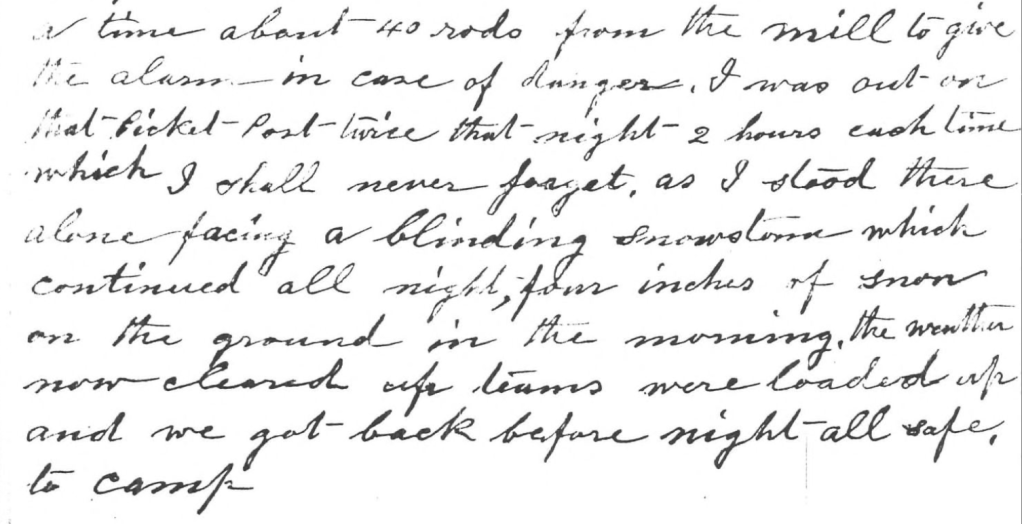 a time about 40 rods from the mill to give
the alarm in case of danger. I was out on
that Picket Post twice that night 2 hours each time
which I shall never forget, as I stood there
alone facing a blinding snowstorm which
continued all night, four inches of snow
on the ground in the morning, the weather
now cleared up teams were loaded up
and we got back before night all safe,
to camp